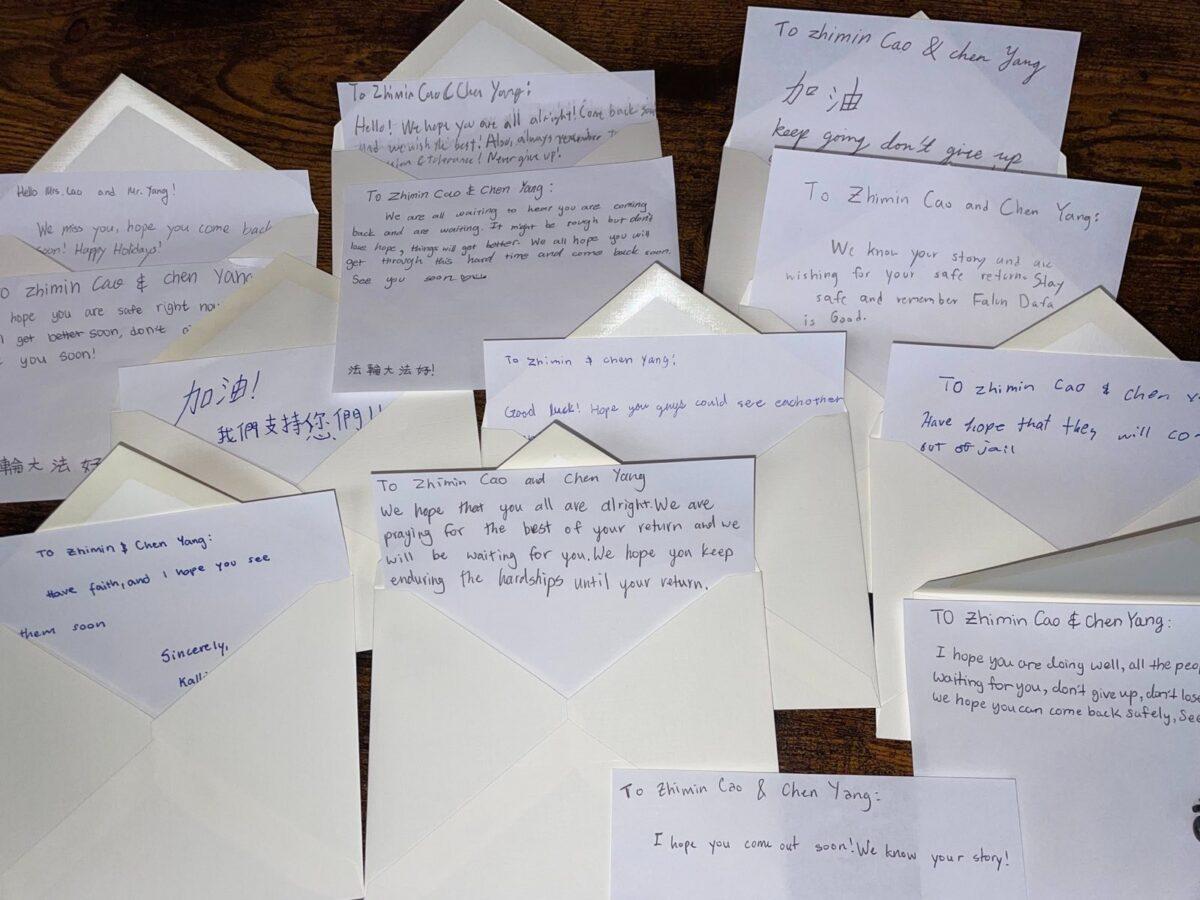 To zhimin Cao & chen Yang
加油
keep going don't give up
To Zhimin Cao & Chen Yang:
Hello! We hope you are all alright! Come back soon
and we wish the best! Also, always remember
& tolerance! Never give up!
Hello Mrs. Cao and Mr. Yang!
We miss you, hope you come back
soon! Happy Holidays!
To Zhimin Cao & Chen Yang:
We are all waiting to hear you are coming
back and are waiting. It might be rough but don't
lose hope, things will get better. We all hope you will
get through this hard time and come back soon.
See you soon
法輪大法好!
To Zhimin Cao and Chen Yang:
We know your story and are
wishing for your safe return. Stay
safe and remember Falun Dafa
is Good.
To zhimin Cao & chen Yang
hope you are safe right now
get better soon, don't
you soon!
輪大法好
加油!
我們支持您們!!
To zhimin & chen Yang:
Good luck! Hope you guys could see eachother
To zhimin Cao & chen
Have hope that they will
out of jail
To Zhimin Cao and Chen Yang
We hope that you all are alright. We are
praying for the best of your return and we
will be waiting for you. We hope you keep
enduring the hardships until your return.
To Zhimin & Chen Yang:
Have faith, and I hope you see
them soon
Sincerely,
To Zhimin Cao & Chen Yang:
I hope you are doing well, all the
waiting for you, don't give up, don't lose
we hope you can come back safely, See
To Zhimin Cao & Chen Yang:
I hope you come out soon! We know your story!